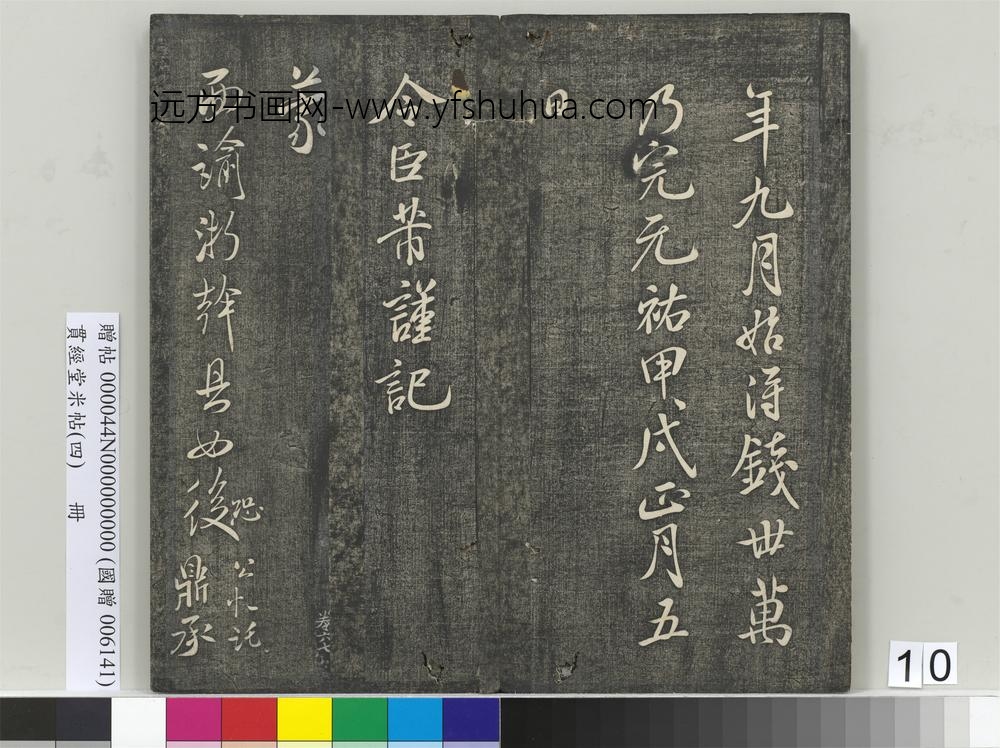 年九月始得錢卅萬
乃完元祐甲戌正月五
日
令臣芾謹記
蒙
再諭淛幹具如後
恐公忙託
鼎承
卷六
远方书画网-www.yfshuhua.com
贈帖 000044N000000000 (國贈 006141)
貫經堂米帖(四) 冊
10